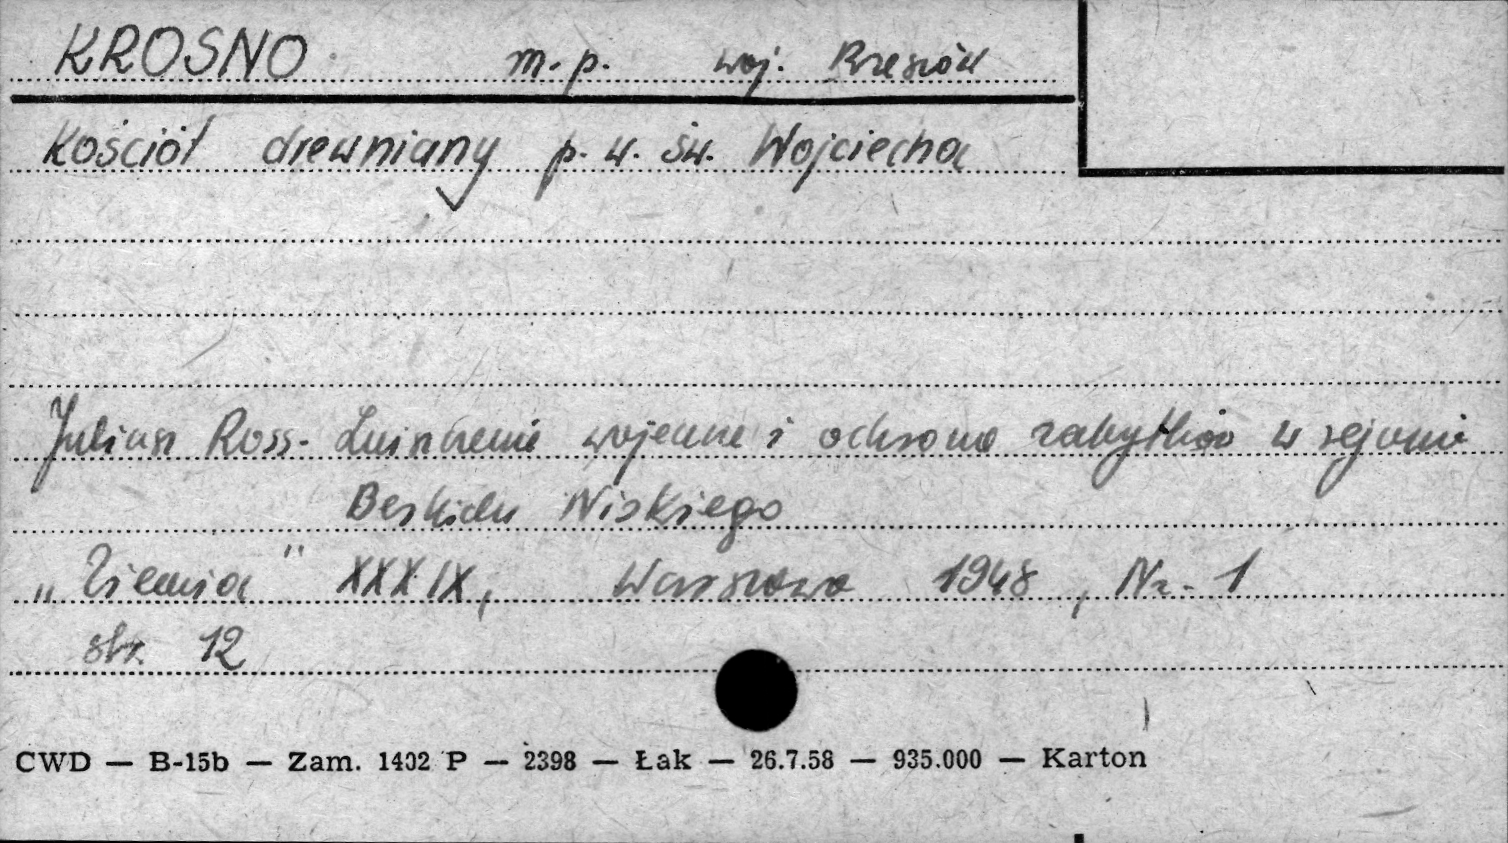 KROSNO m.p. woj. Rzeszów
Kościół drewniany p.w. św. Wojciecha
Julian Ross - Zniszczenie wojenne i ochrona zabytków w rejonie
Beskidu Niskiego
„Ziemia" XXXIX, Warszawa 1948, Nr. 1
str. 12
CWD — B-15b — Zam. 1402 P — 2398 — Łak — 26.7.58 — 935.000 — Karton